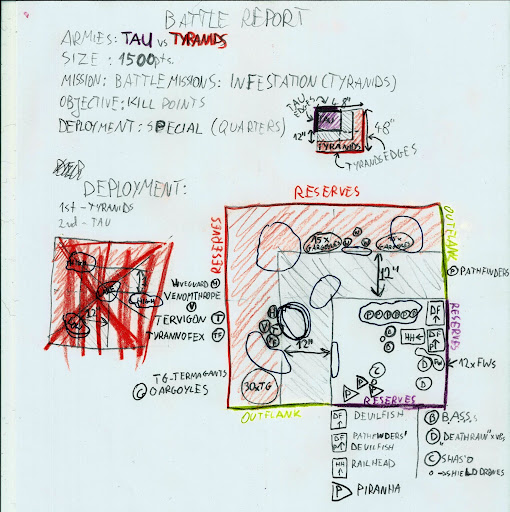 BATTLE REPORT
ARMIES: TAU vs TYRANIDS
SIZE : 1500pts.
MISSION: BATTLEMISSIONS: INFESTATION (TYRANIDS)
OBJECTIVE: KILL POINTS
DEPLOYMENT: SPECIAL (QUARTERS)
TAU EDGES
48"
TAU
12"
48"
TYRANIDS
TYRANIDS EDGES
DEPLOYMENT:
1st - TYRANIDS
2nd - TAU
RESERVES
RESERVES
OUTFLANK
15x GARGOYLES
GARGOYLES
PATHFINDERS
12"
HIVEGUARD H
VENOMTHROPE V
TERVIGON T
TYRANNOFEX TF
TG-TERMAGANTS
G GARGOYLES
12"
30xTG
DF
HH
DF
P
FW
12xFWs
RESERVES
RESERVES
OUTFLANK
DF DEVILFISH
DF P PATHFINDERS' DEVILFISH
HH RAILHEAD
P PIRANHA
B B.A.S.S.
D "DEATHRAIN" XV8s
C SHAS'O
o → SHIELD DRONES